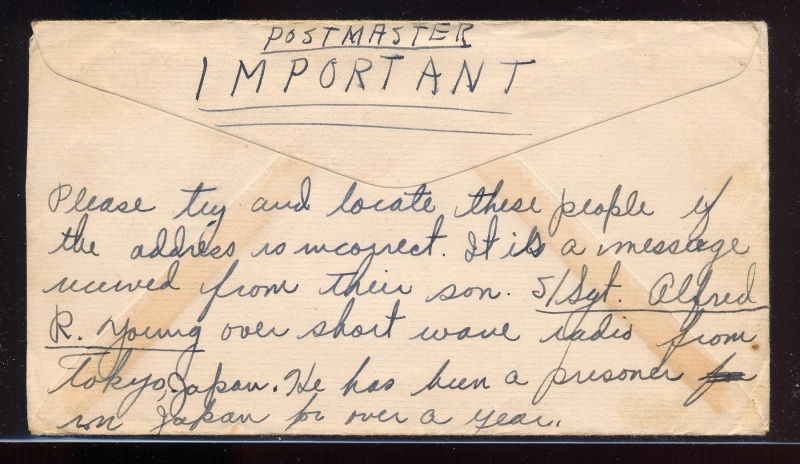 POSTMASTER
IMPORTANT
Please try and locate these people if
the address is incorrect. It is a message
received from their son. S/Sgt. Alfred
R. Young over short wave radio from
Tokyo, Japan. He has been a prisoner
in Japan for over a year.